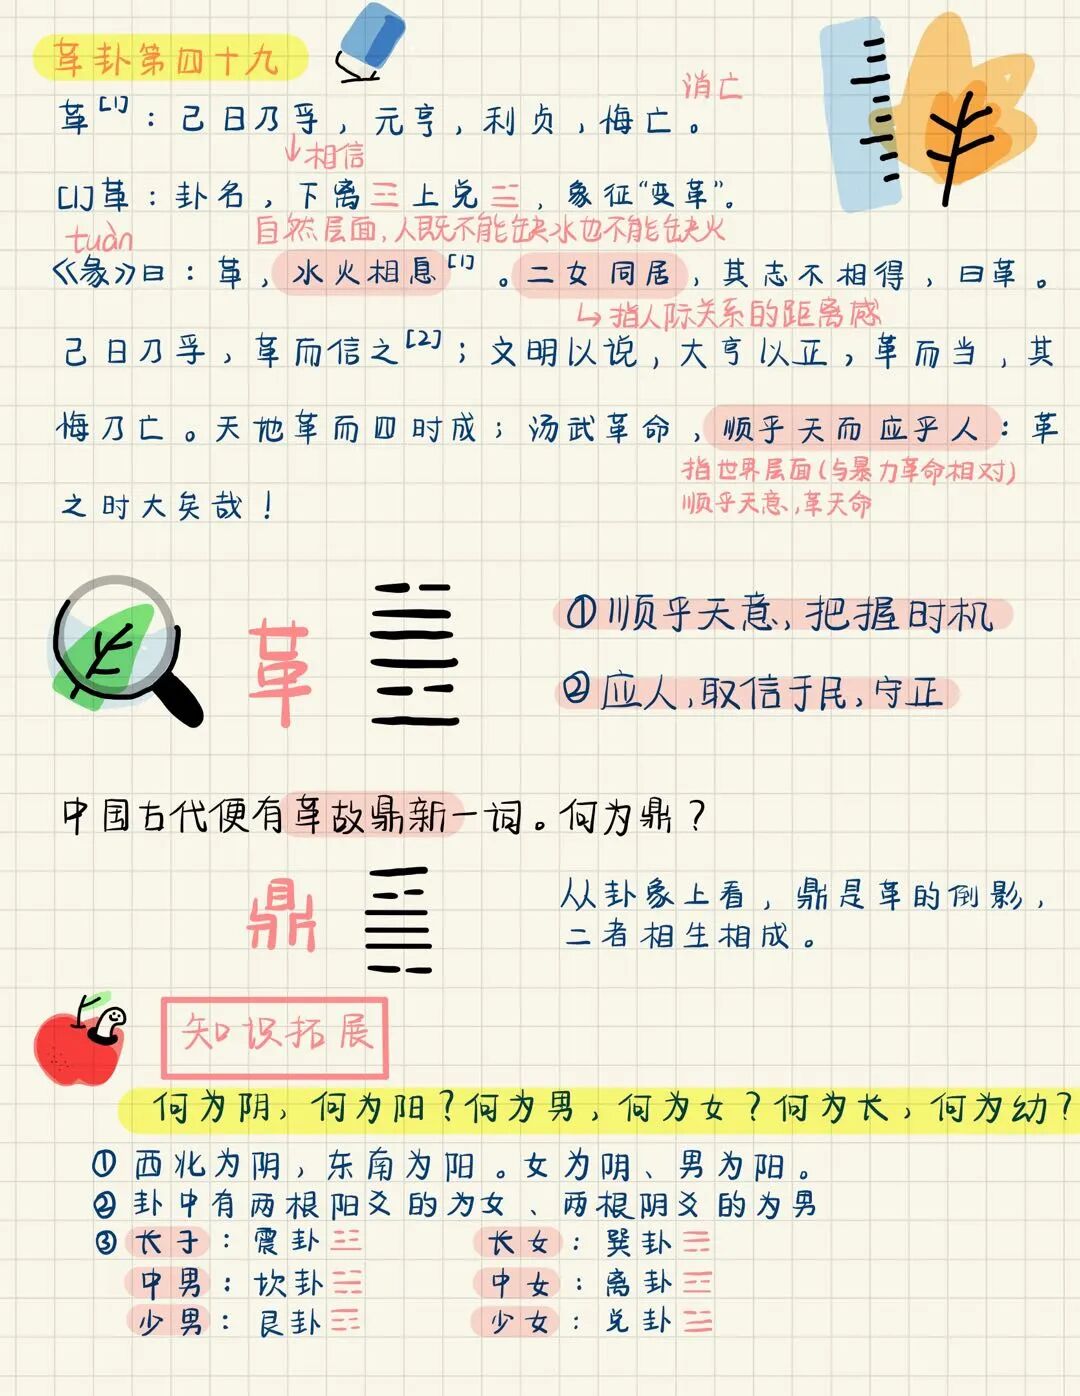 革卦第四十九
消亡
革[1]：己日乃孚，元亨，利贞，悔亡。
↓相信
[1]革：卦名，下离☲上兑☱，象征“变革”。
tuàn
自然层面，人既不能缺水也不能缺火
《彖》曰：革，水火相息[1]。二女同居，其志不相得，曰革。
↳指人际关系的距离感
己日乃孚，革而信之[2]；文明以说，大亨以正，革而当，其
悔乃亡。天地革而四时成；汤武革命，顺乎天而应乎人：革
指世界层面(与暴力革命相对)
之时大矣哉！
顺乎天意，革天命
革
①顺乎天意，把握时机
②应人，取信于民，守正
中国古代便有革故鼎新一词。何为鼎？
鼎
从卦象上看，鼎是革的倒影，
二者相生相成。
知识拓展
何为阴，何为阳？何为男，何为女？何为长，何为幼？
①西北为阴，东南为阳。女为阴、男为阳。
②卦中有两根阳爻的为女、两根阴爻的为男
③长子：震卦☳ 长女：巽卦☴
中男：坎卦☵ 中女：离卦☲
少男：艮卦☶ 少女：兑卦☱